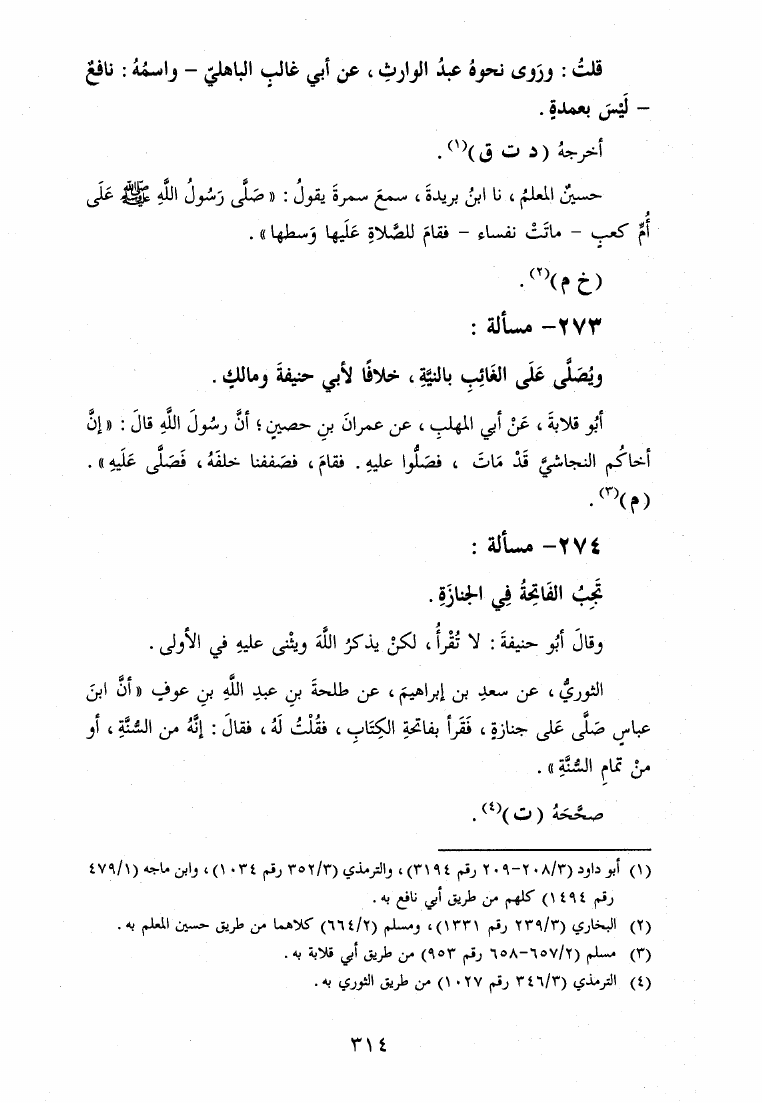 قلتُ : ورَوى نحوهُ عبدُ الوارثِ ، عن أبي غالبٍ الباهليّ – واسمُهُ : نافعٌ
– لَيْسَ بعمدةٍ .
أخرجهُ ( د ت ق )(١) .
حسينٌ المعلمُ ، نا ابنُ بريدةَ ، سمعَ سمرةَ يقولُ : « صَلَّى رَسُولُ اللَّهِ ﷺ عَلَى
أُمِّ كعبٍ – ماتَتْ نفساء – فقامَ للصَّلاةِ عَلَيها وَسطها » .
( خ م )(٢) .
٢٧٣– مسألة :
ويُصَلَّى عَلَى الغَائِبِ بالنيَّةِ ، خلافًا لأبي حنيفةَ ومالكٍ .
أبُو قلابةَ ، عَنْ أبي المهلبِ ، عن عمرانَ بنِ حصينٍ ؛ أنَّ رسُولَ اللَّهِ قالَ : « إنَّ
أخاكُم النجاشيَّ قَدْ مَاتَ ، فصَلُّوا عليهِ . فقامَ ، فصَففنا خلفَهُ ، فَصَلَّى عَلَيهِ » .
( م )(٣) .
٢٧٤– مسألة :
تَجِبُ الفَاتحَةُ فِي الجنازَةِ .
وقالَ أبُو حنيفةَ : لا تُقْرأُ ، لكنْ يذكرُ اللَّهَ ويثْنى عليهِ في الأولى .
الثوريُّ ، عن سعدِ بن إبراهيمَ ، عن طلحةَ بنِ عبدِ اللَّهِ بنِ عوفٍ « أنَّ ابنَ
عباسٍ صَلَّى عَلى جنازةٍ ، فَقَرأ بفاتحةِ الكِتَابِ ، فقُلْتُ لَهُ ، فقالَ : إنَّهُ من السُّنَّةِ ، أو
منْ تمامِ السُّنَّةِ » .
صحَّحَهُ ( ت )(٤) .
(١) أبو داود (٢٠٨/٣–٢٠٩ رقم ٣١٩٤) ، والترمذي (٣٥٢/٣ رقم ١٠٣٤) ، وابن ماجه (٤٧٩/١
رقم ١٤٩٤) كلهم من طريق أبي نافع به .
(٢) البخاري (٢٣٩/٣ رقم ١٣٣١) ، ومسلم (٦٦٤/٢) كلاهما من طريق حسين المعلم به .
(٣) مسلم (٦٥٧/٢–٦٥٨ رقم ٩٥٣) من طريق أبي قلابة به .
(٤) الترمذي (٣٤٦/٣ رقم ١٠٢٧) من طريق الثوري به .
٣١٤